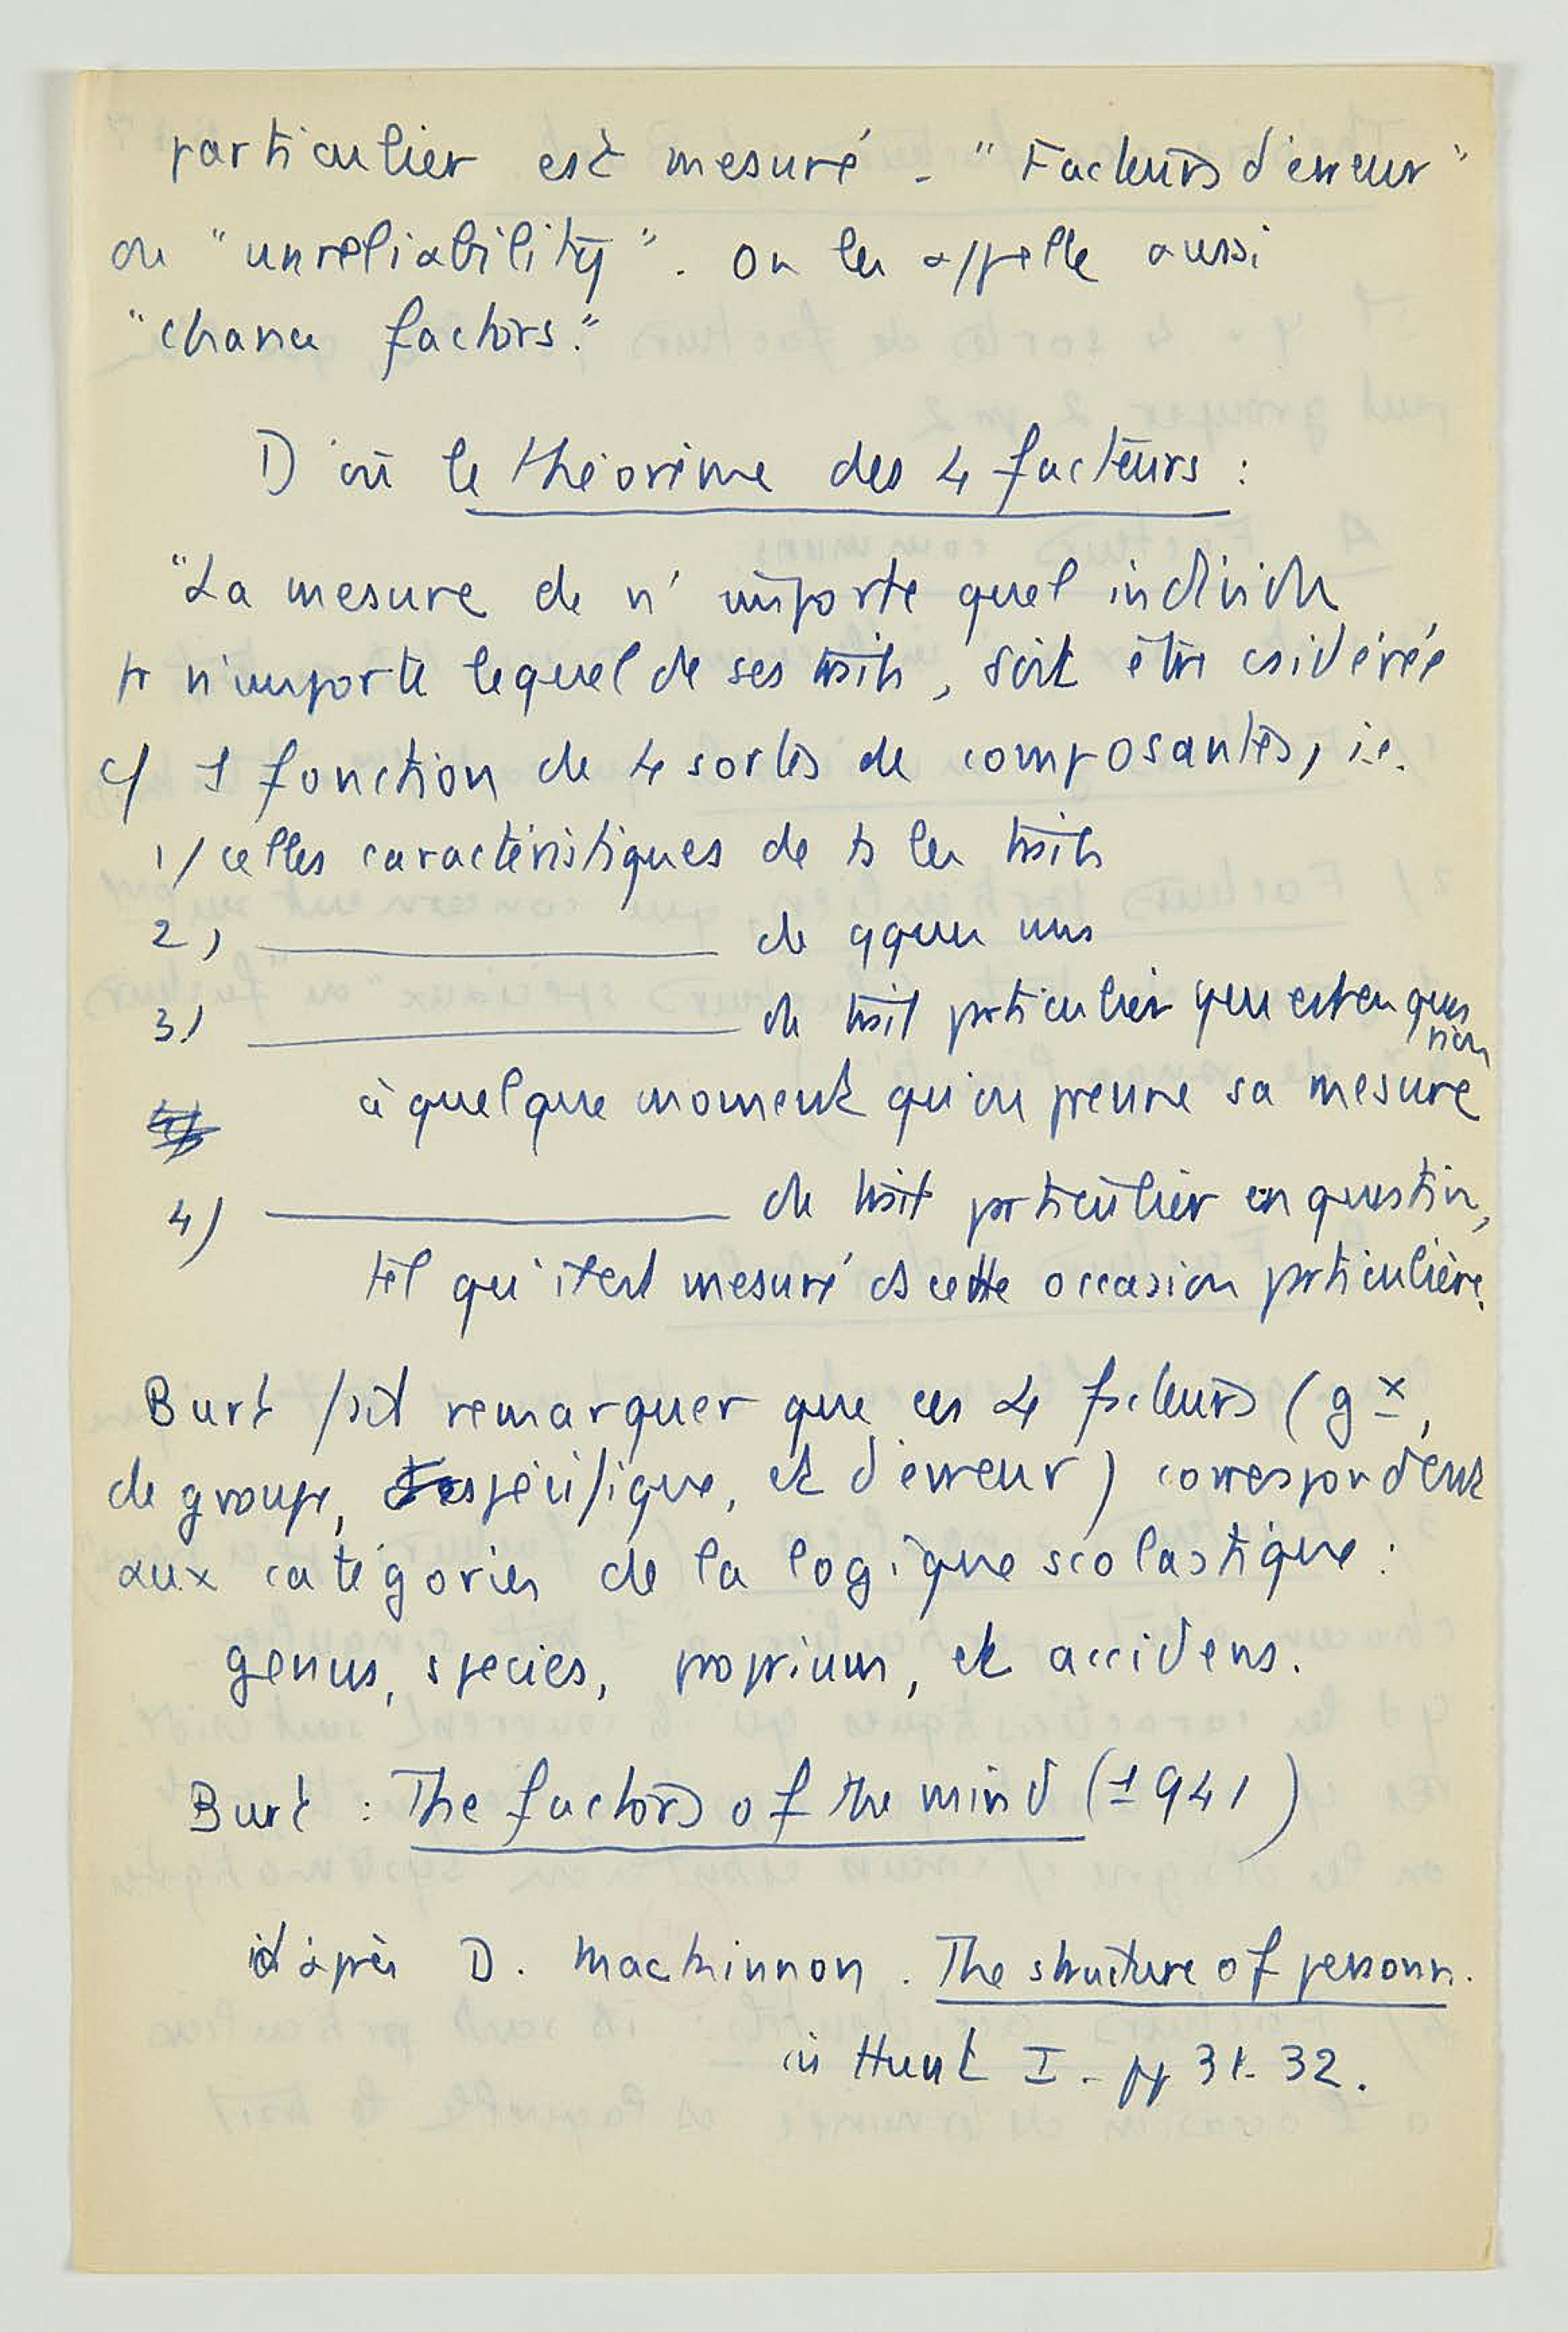 particulier est mesuré - "Facteurs d'erreur"
ou "unreliability". On les appelle aussi
"chance factors."
D'où le théorème des 4 facteurs :
"La mesure de n'importe quel individu
pr n'importe lequel de ses traits, doit être csidérée
c/ 1 fonction de 4 sortes de composantes, i.e.
1/ celles caractéristiques de ts les traits
2) ———— de qques uns
3) ———— du trait particulier qui est en ques
tion
à quelque moment qu'on prenne sa mesure
4) ———— du trait particulier en question,
tel qu'il est mesuré ds cette occasion particulière.
Burt fait remarquer que ces 4 facteurs (gx,
de groupe, spécifique, et d'erreur) correspondent
aux catégories de la logique scolastique :
genus, species, proprium, et accidens.
Burt : The factors of the mind (1941)
d'après D. Mackinnon. The structure of personn.
in Hunt I - pp 31-32.